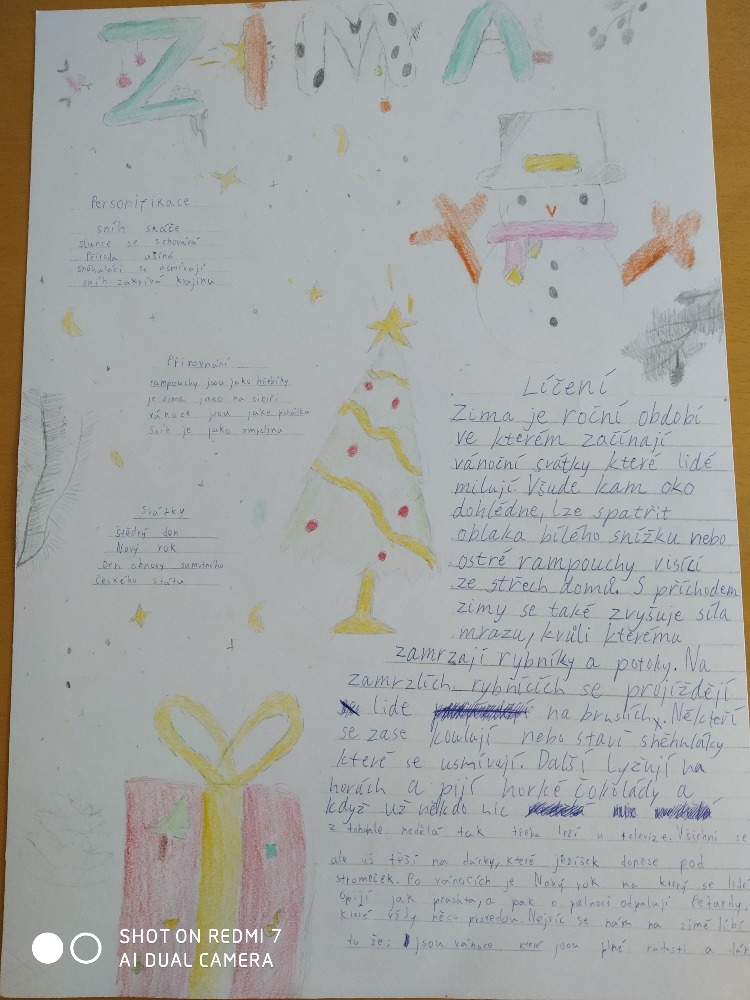 ZIMA
Personifikace
sníh skáče
slunce se schovává
Příroda usíná
sněhuláci se usmívají
sníh zakrývá krajinu
Přirovnání
rampouchy jsou jako hřebíky
je zima jako na sibiři
vánoce jsou jako pohádka
Sníh je jako zmrzlina
Svátky
štědrý den
Nový rok
Den obnovy samostného
českého státu
Líčení
Zima je roční období
ve kterém začínají
vánoční svátky které lidé
milují. Všude kam oko
dohlédne, lze spatřit
oblaka bílého snížku nebo
ostré rampouchy visící
ze střech domů. S příchodem
zimy se také zvyšuje síla
mrazu, kvůli kterému
zamrzají rybníky a potoky. Na
zamrzlích rybnících se projíždějí
lide na bruslích. Někteří
se zase koulují nebo staví sněhuláky
které se usmívají. Další lyžují na
horách a pijí horké čokolády a
když už někdo nic
z tohohle nedělá tak třeba leží u televize. Všichni se
ale už těší na dárky, které ježíšek donese pod
stromeček. Po vánocích je Nový rok na který se lidé
opijí jak prasata, a pak o půlnoci odpalují Petardy.
které vždy něco provedou. Nejvíc se nám na zimě líbí
to že: jsou vánoce které jsou plné radosti a